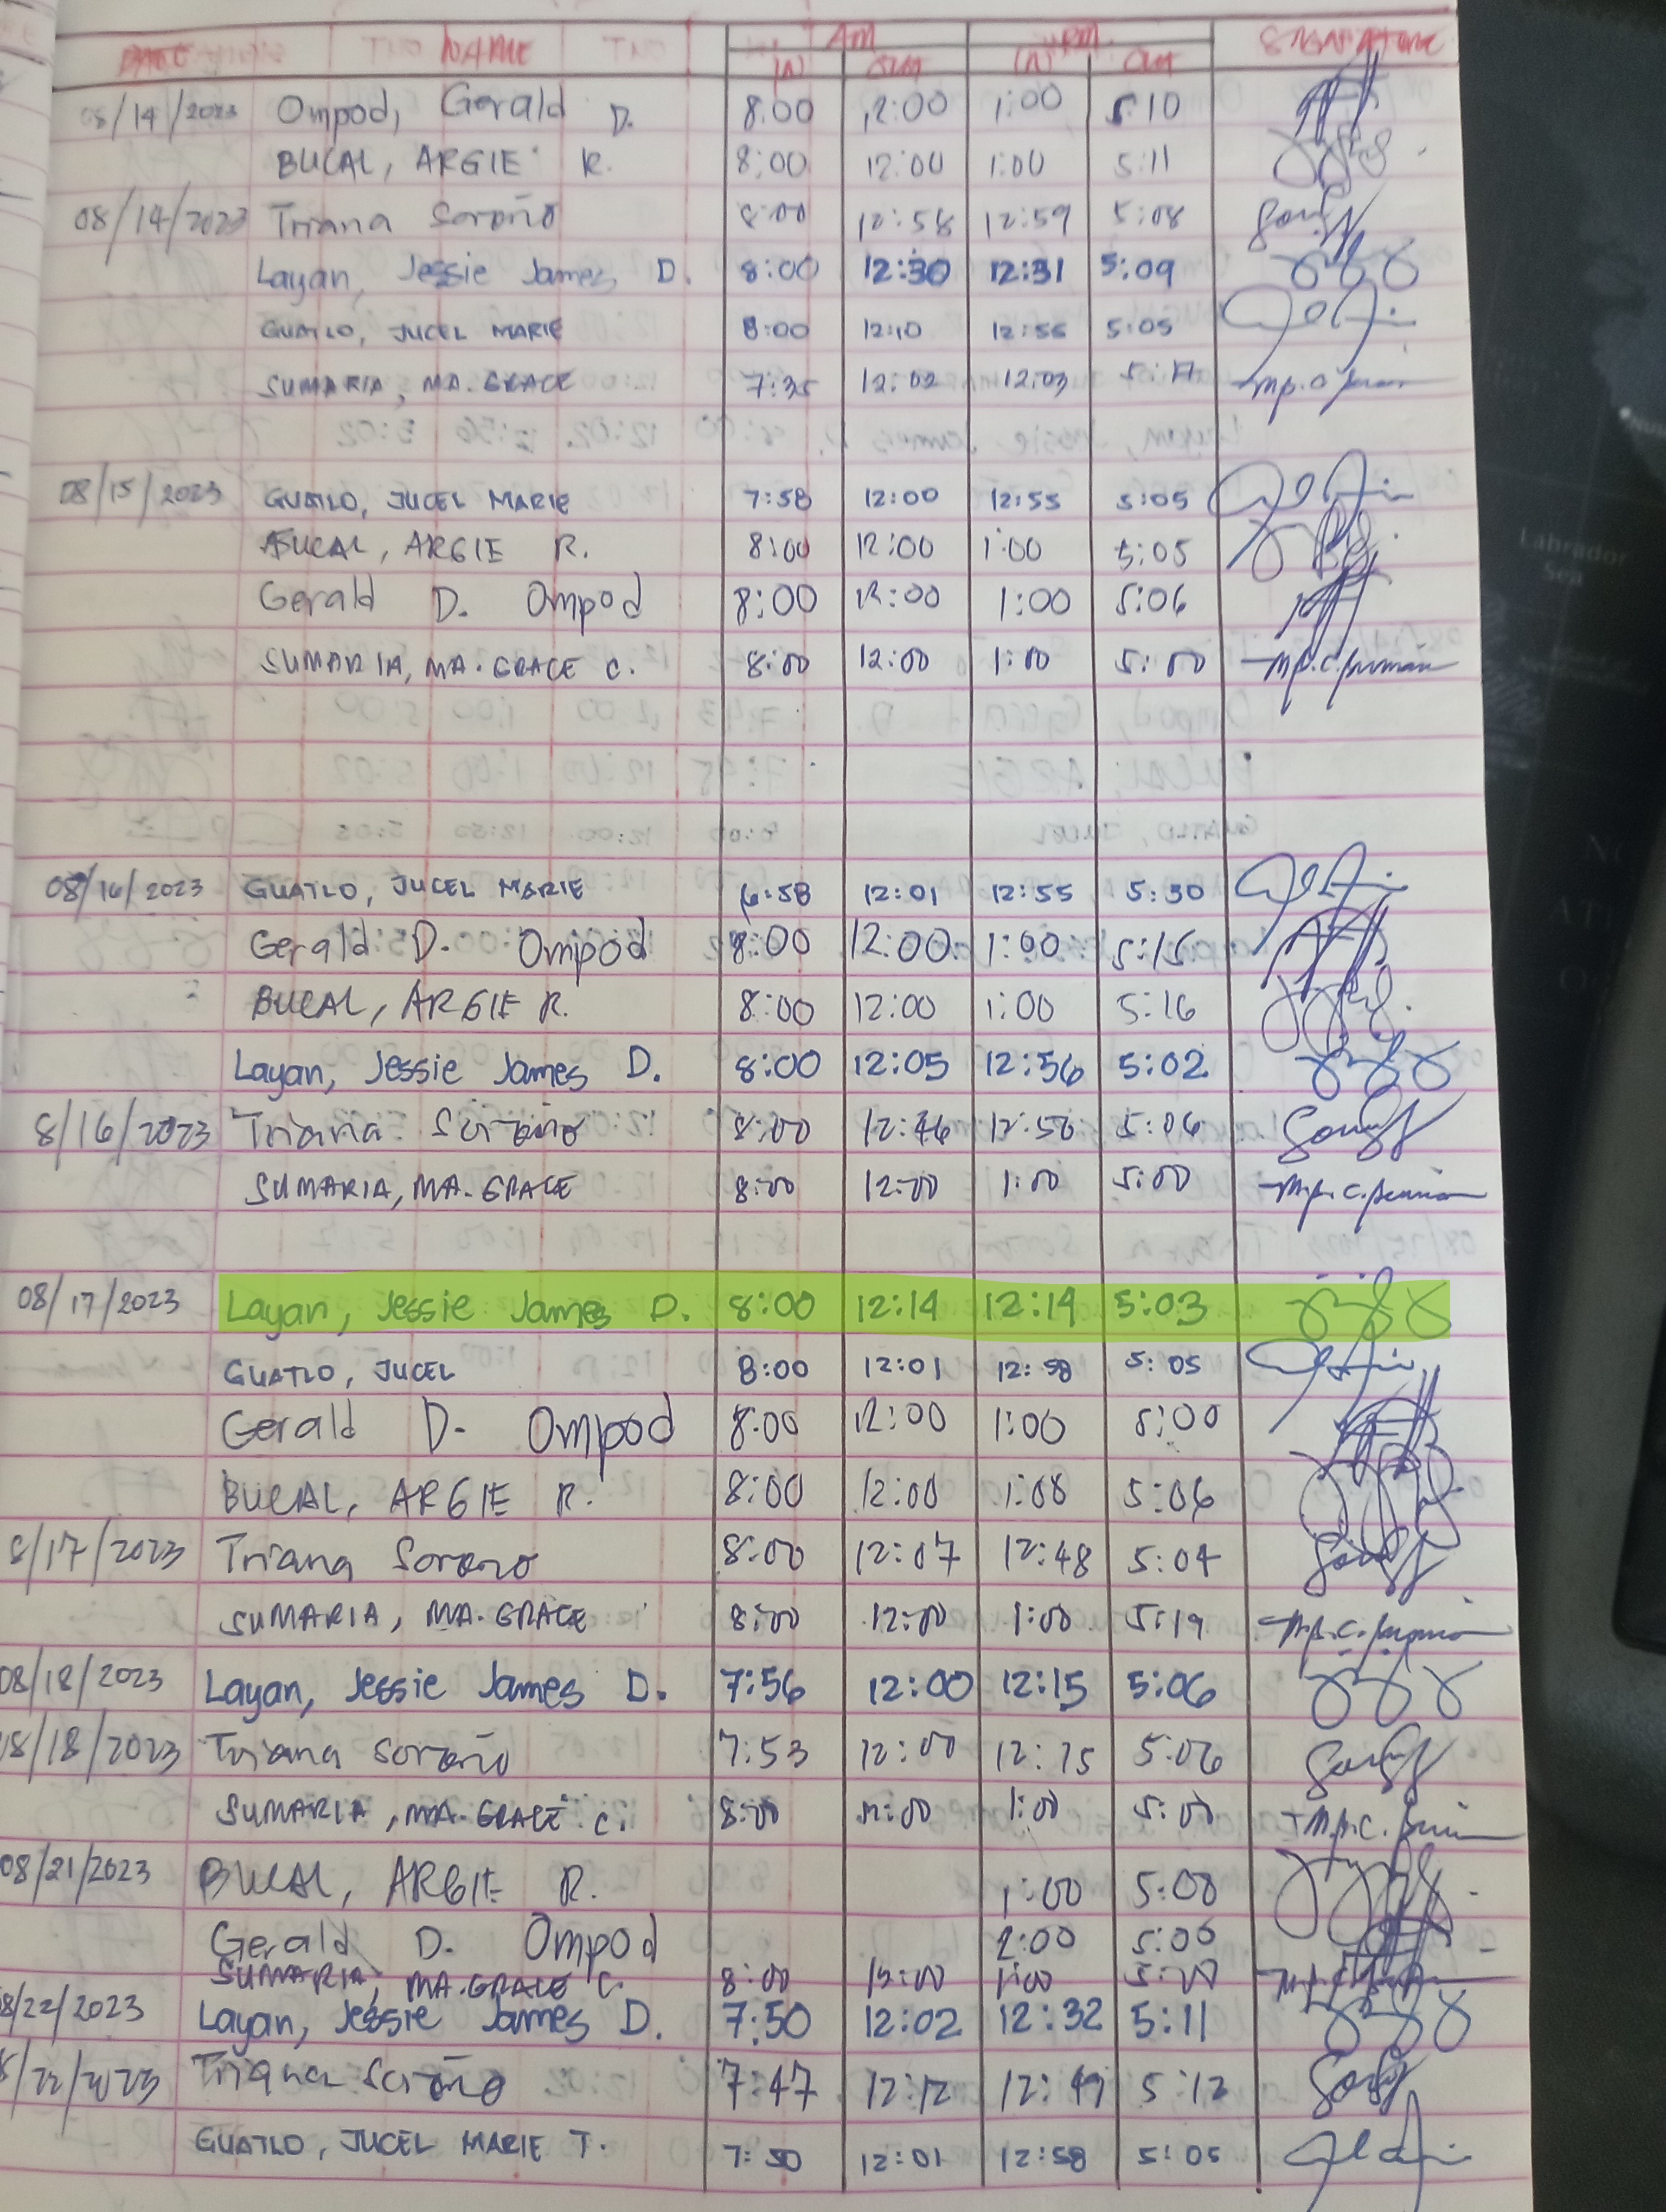 DATE NAME AM PM SIGNATURE
IN OUT IN OUT
08/14/2023 Ompod, Gerald D. 8:00 12:00 1:00 5:10
BUCAL, ARGIE R. 8:00 12:00 1:00 5:11
08/14/2023 Triana Soroño 8:00 12:58 12:59 5:08
Layan, Jessie James D. 8:00 12:30 12:31 5:09
GUATLO, JUCEL MARIE 8:00 12:10 12:55 5:05
SUMARIA, MA. GRACE 7:35 12:02 12:03 5:17
08/15/2023 GUATLO, JUCEL MARIE 7:58 12:00 12:55 5:05
BUCAL, ARGIE R. 8:00 12:00 1:00 5:05
Gerald D. Ompod 8:00 12:00 1:00 5:06
SUMARIA, MA. GRACE C. 8:00 12:00 1:00 5:00
08/16/2023 GUATLO, JUCEL MARIE 6:58 12:01 12:55 5:30
Gerald D. Ompod 8:00 12:00 1:00 5:15
BUCAL, ARGIE R. 8:00 12:00 1:00 5:16
Layan, Jessie James D. 8:00 12:05 12:56 5:02
8/16/2023 Triana Soroño 8:00 12:46 12:56 5:06
SUMARIA, MA. GRACE 8:00 12:00 1:00 5:00
08/17/2023 Layan, Jessie James D. 8:00 12:14 12:19 5:03
GUATLO, JUCEL 8:00 12:01 12:58 5:05
Gerald D. Ompod 8:00 12:00 1:00 5:00
BUCAL, ARGIE R. 8:00 12:00 1:08 5:06
8/17/2023 Triana Soroño 8:00 12:07 12:48 5:04
SUMARIA, MA. GRACE 8:00 12:00 1:00 5:19
08/18/2023 Layan, Jessie James D. 7:56 12:00 12:15 5:06
8/18/2023 Triana Soroño 7:53 12:00 12:15 5:06
SUMARIA, MA. GRACE C. 8:00 12:00 1:00 5:00
08/21/2023 BUCAL, ARGIE R. 1:00 5:00
Gerald D. Ompod 2:00 5:00
SUMARIA, MA. GRACE C. 8:00 12:00 1:00 5:00
8/22/2023 Layan, Jessie James D. 7:50 12:02 12:32 5:11
8/22/2023 Triana Soroño 7:47 12:12 12:49 5:12
GUATLO, JUCEL MARIE T. 7:50 12:01 12:58 5:05
Labrador
Sea